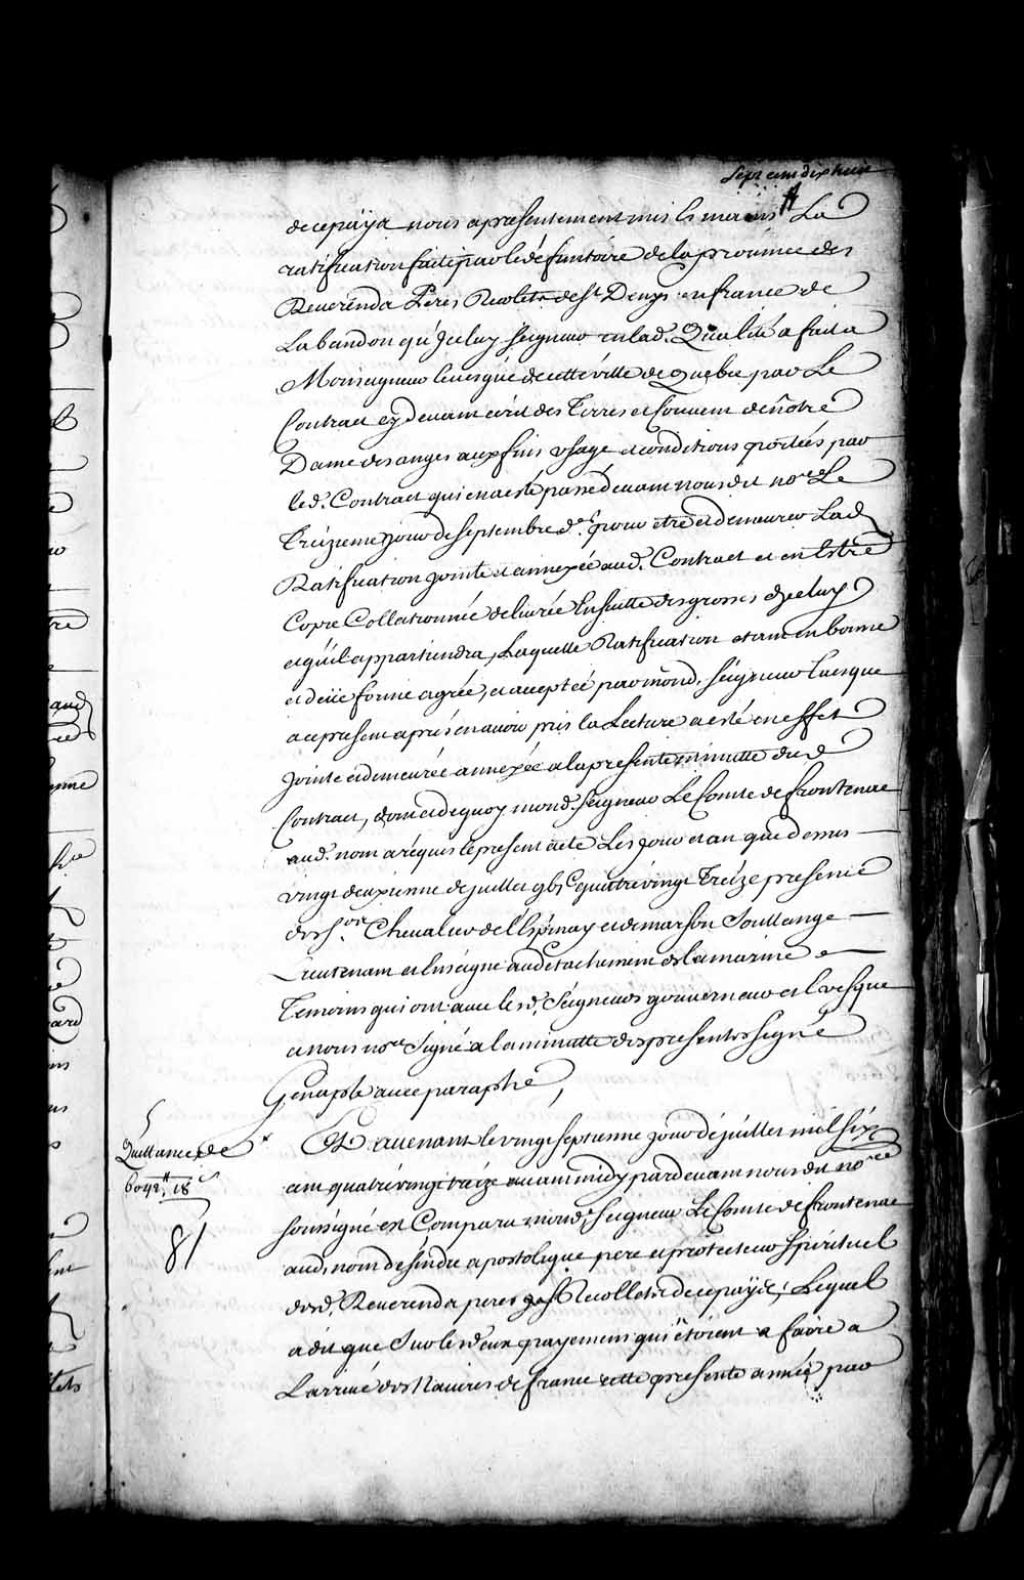 Sept cent dix huit
de ce païs a nous a presentement mis es mains La
ratification faite par le défінitoire de la province des
Reverends Peres Recolets de St Denys en france de
Labandon qu'Jceluy Seigneur en lad. Qualité a fait a
Monseigneur levesque de cette ville de Quebec par Le
Contract cy devant écrit des Terres et Couvent de nôtre
Dame des anges aux fins usage et conditions portées par
led. Contract qui en a esté passé devant nous dit nore Le
Treizieme jour de Septembre der pour etre et demeurer Lad
Ratification jointe et annexée aud. Contract et en estre
Copie Collationnée delivrée Ensuitte des grosses d'Jceluy
a qu'il appartiendra, Laquelle Ratification etant en bonne
et deüe forme agrée, et acceptée par mond. Seigneur Levesque
a ce present aprés en avoir pris la Lecture a esté en effet
jointe et demeurée annexée a la presente minutte dud
Contract, dont et de quoy mond. Seigneur Le Comte de frontenac
aud. nom a requis le present acte Les jour et an que dessus
vingt deuxieme de juillet gbjc quatre vingt Treize presence
des Srs Chevalier de l'Espinay et de marson Soullange
Lieutenant et Enseigne au detachement de la marine
Temoins qui ont avec lesd. Seigneurs gouverneur et Evesque
et nous nore Signé a la minutte des presentes Signé
Genaple avec paraphe,
Quittance de
6042# 18s
81
Et avenant le vingt septieme jour de juillet mil six
cent quatre vingt treize avant midy pardevant nous dit nore
soussigné est Comparu mond. Seigneur Le Comte de frontenac
aud. nom de Sindic apostolique pere et protecteur Spirituel
desd. Reverends peres Recollets de ce païs, Lequel
a dit que Sur les deux payemens qui étoient a faire a
L'arrivé des Navires de france cette presente année par